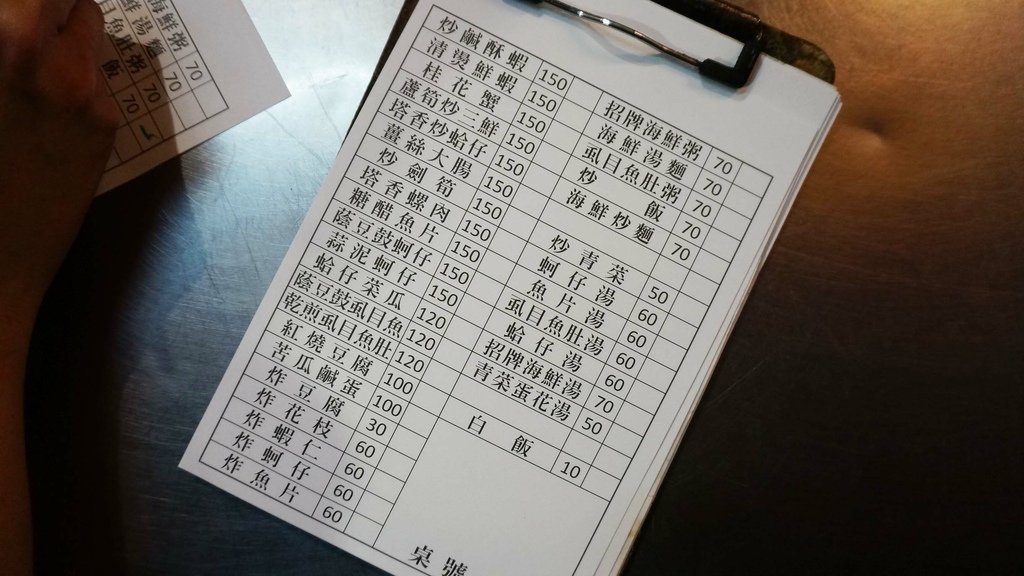 炒鹹酥蝦 150
清燙鮮蝦 150
桂花蟹 150
蘆筍炒三鮮 150
塔香炒蛤仔 150
薑絲大腸 150
炒劍筍 150
塔香螺肉 150
糖醋魚片 150
蔭豆鼓蚵仔 150
蒜泥蚵仔 150
蛤仔菜瓜 120
蔭豆鼓虱目魚 120
乾煎虱目魚肚 120
紅燒豆腐 100
苦瓜鹹蛋 100
炸豆腐 30
炸花枝 60
炸蝦仁 60
炸蚵仔 60
炸魚片 60
招牌海鮮粥 70
海鮮湯麵 70
虱目魚肚粥 70
炒飯 70
海鮮炒麵 70
炒青菜 50
蚵仔湯 60
魚片湯 60
虱目魚肚湯 60
蛤仔湯 60
招牌海鮮湯 70
青菜蛋花湯 50
白飯 10
桌號
海鮮粥 70
海鮮湯麵 70
目魚肚粥 70
飯 70